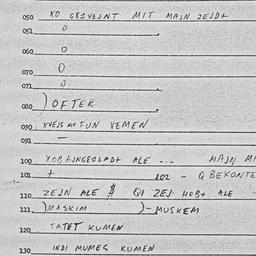 050 XO GEVEJNT MIT MAJN ZEJD+
051 0
060 0
070 0
071 0
080 ) OFTER
090 XVEJS NIT FUN VEMEN
091 —
100 ALE --- MAJN
101 + 102 - Q BEKONTE
110 ZEJN ALE $ QI ZEJ HOBT ALE
111 ) MASKIM )- MUSKEM
120 TATET KUMEN
130 INDI MUMES KUMEN